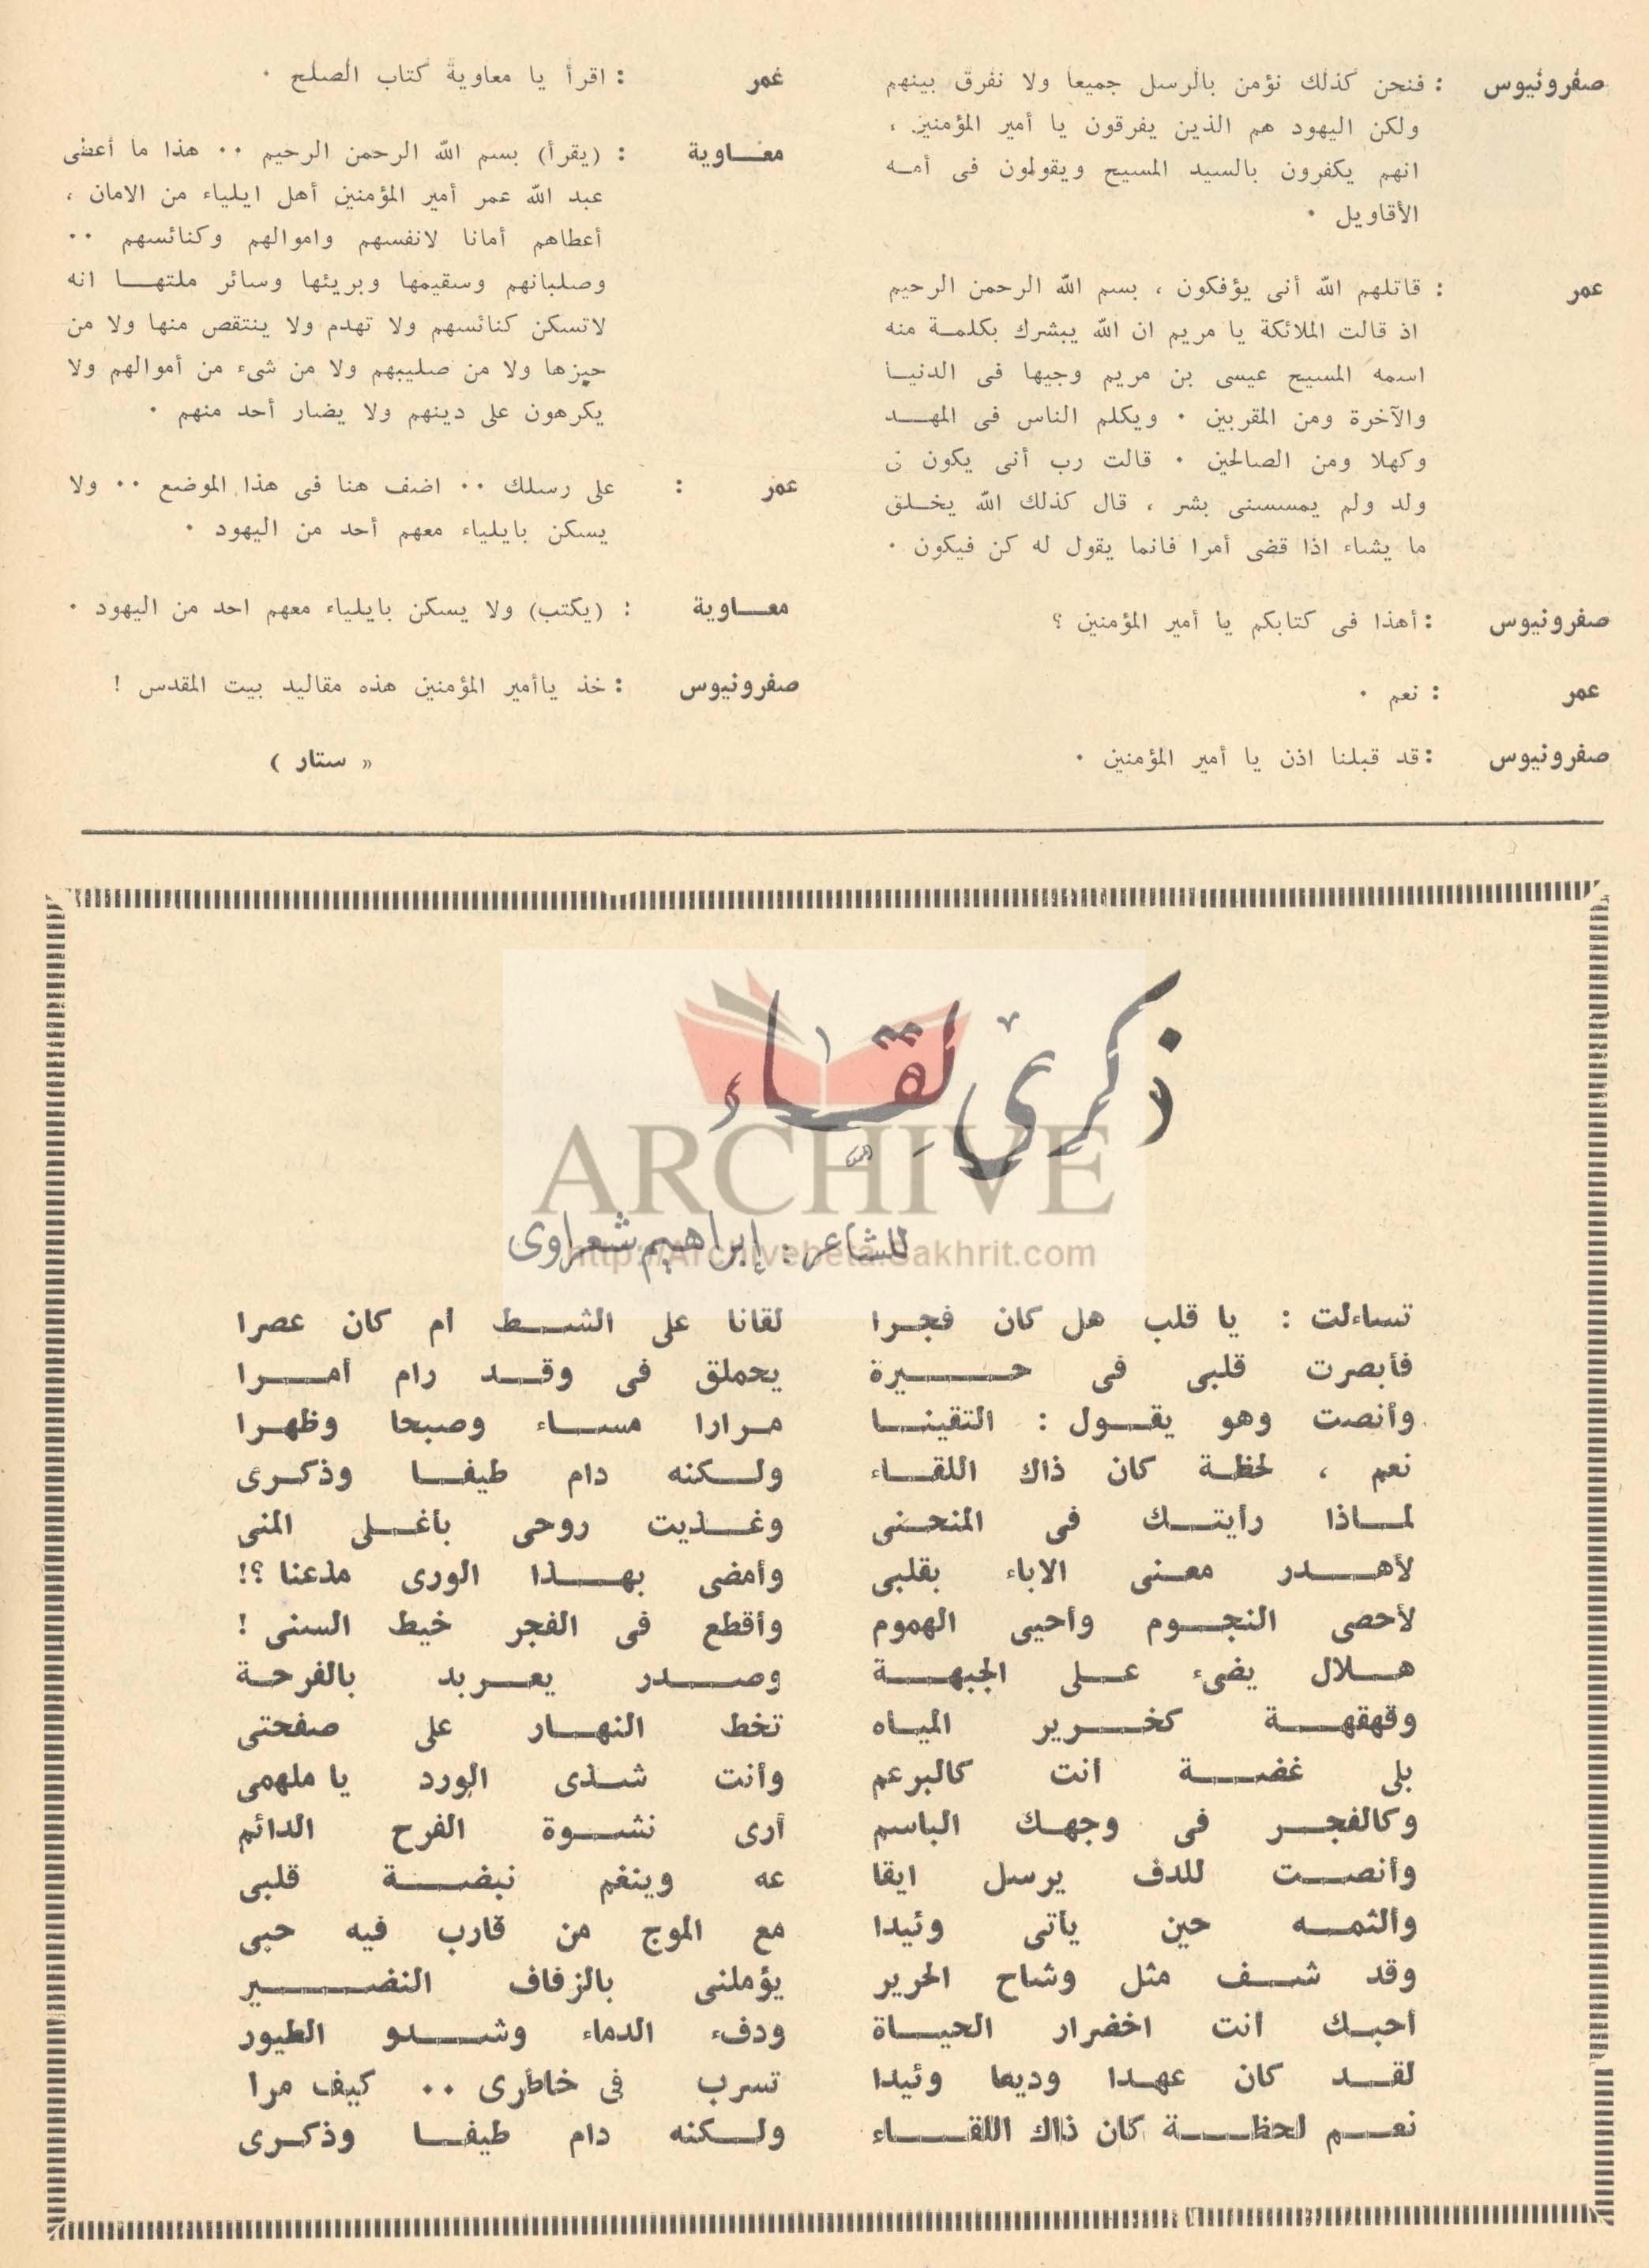 صفرونيوس : فنحن كذلك نؤمن بالرسل جميعا ولا نفرق بينهم
ولكن اليهود هم الذين يفرقون يا أمير المؤمنين ،
انهم يكفرون بالسيد المسيح ويقولون فى أمـه
الأقاويل .
عمر : قاتلهم الله أنى يؤفكون ، بسم الله الرحمن الرحيم
اذ قالت الملائكة يا مريم ان الله يبشرك بكلمـة منه
اسمه المسيح عيسى بن مريم وجيها فى الدنيـا
والآخرة ومن المقربين . ويكلم الناس فى المهـد
وكهلا ومن الصالحين . قالت رب أنى يكون
ولد ولم يمسسنى بشر ، قال كذلك الله يخـلق
ما يشاء اذا قضى أمرا فانما يقول له كن فيكون .
صفرونيوس : أهذا فى كتابكم يا أمير المؤمنين ؟
عمر : نعم .
صفرونيوس : قد قبلنا اذن يا أمير المؤمنين .
عمر : اقرأ يا معاوية كتاب الصلح .
معـاوية : (يقرأ) بسم الله الرحمن الرحيم .. هذا ما أعطى
عبد الله عمر أمير المؤمنين أهل ايلياء من الامان ،
أعطاهم أمانا لانفسهم واموالهم وكنائسهم ..
وصلبانهم وسقيمها وبريئها وسائر ملتهـا انه
لاتسكن كنائسهم ولا تهدم ولا ينتقص منها ولا من
حيزها ولا من صليبهم ولا من شىء من أموالهم ولا
يكرهون على دينهم ولا يضار أحد منهم .
عمر : على رسلك .. اضف هنا فى هذا الموضع .. ولا
يسكن بايلياء معهم أحد من اليهود .
معـاوية : (يكتب) ولا يسكن بايلياء معهم احد من اليهود .
صفرونيوس : خذ ياأمير المؤمنين هذه مقاليد بيت المقدس !
« ستار )
ذكرى لقاء
ARCHIVE
للشاعر : إبراهيم شعراوى
http://Archivebeta.Sakhrit.com
تساءلت : يا قلب هل كان فجـرا لقانا على الشـط ام كان عصرا
فأبصرت قلبى فى حـيرة يحملق فى وقـد رام أمـرا
وأنصت وهو يقـول : التقينـا مـرارا مسـاء وصبحا وظهـرا
نعم ، لحظـة كان ذاك اللقـاء ولـكنه دام طيفـا وذكـرى
لمـاذا رأيتـك فى المنحـنى وغـذيت روحى بأغـلى المنى
لأهـدر معـنى الاباء بقلبى وأمضى بهـذا الورى مذعنا ؟!
لأحصى النجـوم وأحيى الهموم وأقطع فى الفجر خيط السنى !
هـلال يضىء عـلى الجبهـة وصـدر يعـربد بالفرحـة
وقهقهـة كخـرير الميـاه تخط النهـار على صفحتى
بلى غضـة أنت كالبرعم وأنت شـذى الورد يا ملهمى
وكالفجـر فى وجهـك الباسم أرى نشـوة الفرح الدائم
وأنصـت للدف يرسل ايقا عه وينغم نبضـة قلبى
وألثمـه حين يأتى وئيدا مع الموج من قارب فيه حبى
وقد شـف مثل وشاح الحرير يؤملنى بالزفاف النضـير
أحبـك أنت اخضرار الحيـاة ودفء الدماء وشـدو الطيور
لقـد كان عهـدا وديعا وئيدا تسرب فى خاطرى .. كيف مرا
نعـم لحظـة كان ذاك اللقـاء ولـكنه دام طيفـا وذكـرى